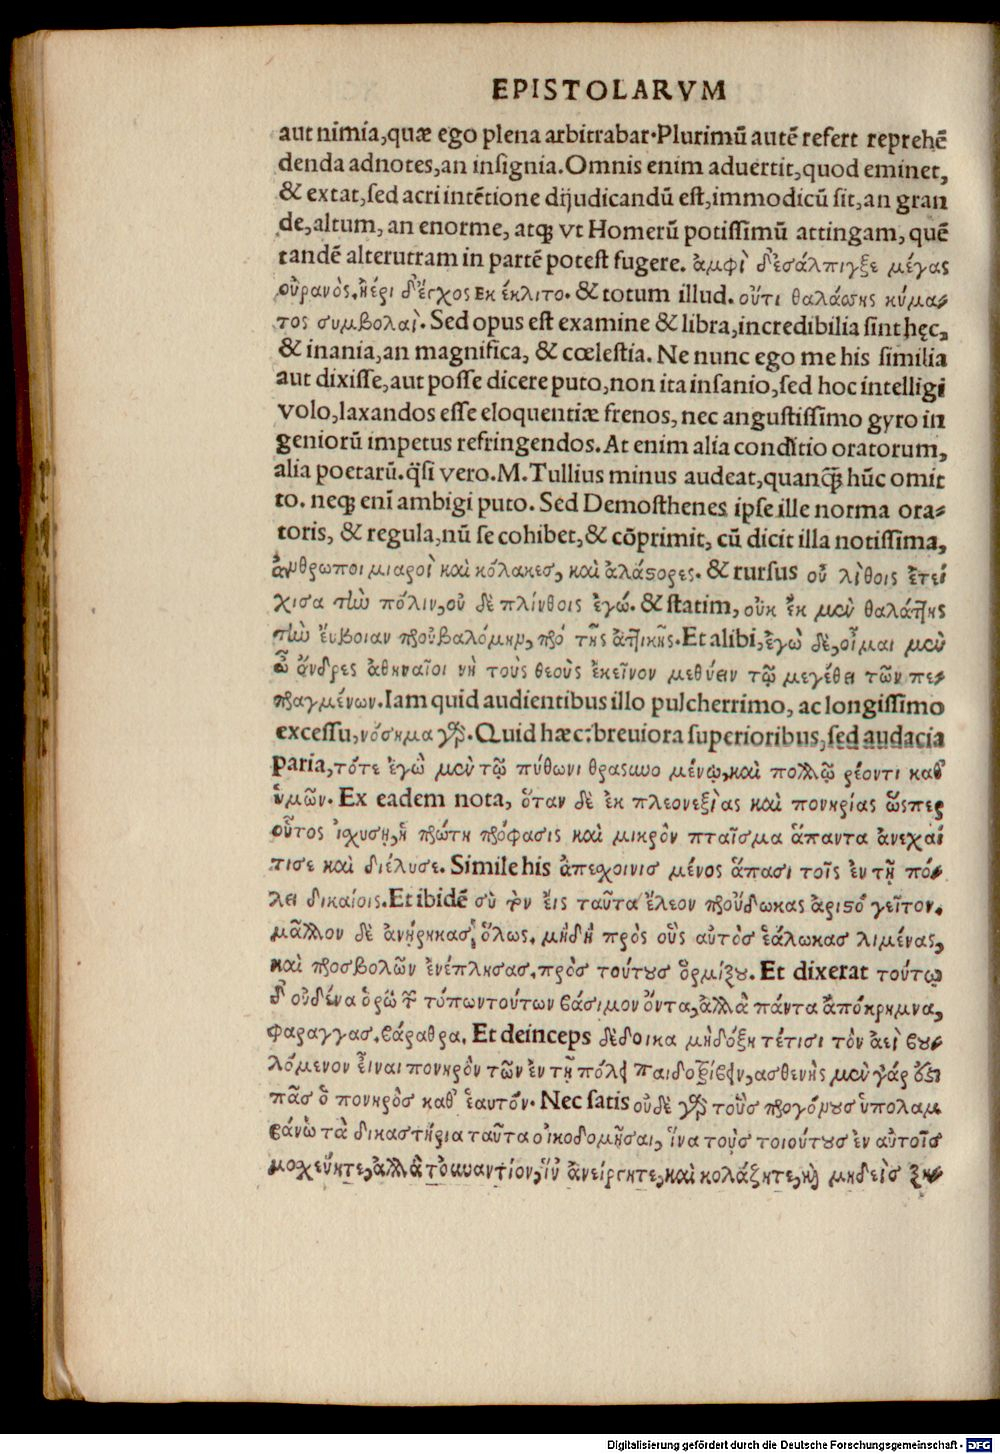 EPISTOLARVM
aut nimia,quæ ego plena arbitrabar·Plurimũ autẽ refert reprehẽ
denda adnotes,an insignia.Omnis enim aduertit,quod eminet,
& extat,sed acri intẽtione dijudicandũ est,immodicũ sit,an gran
de,altum, an enorme, atqꝫ vt Homerũ potissimũ attingam, quẽ
tandẽ alterutram in partẽ potest fugere. ἀμφὶ δ’ἐσάλπιγξε μέγας
οὐρανὸς. ἠέρι δ’ἔγχος ἐκέκλιτο. & totum illud. οὔτι θαλάσσης κύμα-
τος συμβολαὶ. Sed opus est examine & libra,incredibilia sint hęc,
& inania,an magnifica, & cœlestia. Ne nunc ego me his similia
aut dixisse,aut posse dicere puto,non ita insanio,sed hoc intelligi
volo,laxandos esse eloquentiæ frenos, nec angustissimo gyro in
geniorũ impetus refringendos. At enim alia conditio oratorum,
alia poetarũ. q̃si vero.M.Tullius minus audeat,quanꝙ̃ hũc omit
to. neqꝫ eni ambigi puto. Sed Demosthenes ipse ille norma ora-
toris, & regula,nũ se cohibet,& cõprimit, cũ dicit illa notissima,
ἄνθρωποι μιαροὶ καὶ κόλακες, καὶ ἀλάςορες. & rursus οὐ λίθοις ἐτεί
χισα τὴν πόλιν,οὐ δὲ πλίνθοις ἐγώ. & statim, οὐκ ἐκ μὲν θαλάττης
τὴν ἔυβοιαν προὐβαλόμην, πρό τῆς ἀττικῆς. Et alibi,ἐγὼ δὲ,οἶμαι μὲν
ὦ ἄνδρες ἀθηναῖοι νὴ τοὺς θεοὺς ἐκεῖνον μεθύειν τῷ μεγέθει τῶν πε-
πραγμένων. Iam quid audientibus illo pulcherrimo, ac longissimo
excessu,νόσημα γὰρ. Quid hæc?breuiora superioribus,sed audacia
paria,τότε ἐγὼ μὲν τῷ πύθωνι θρασυνο μένῳ,καὶ πολλῷ ῥέοντι καθ’
ὑμῶν. Ex eadem nota, ὅταν δὲ ἐκ πλεονεξίας καὶ πονηρίας ὥσπερ
οὗτος ἰχυσῃ,ἡ πρώτη πρόφασις καὶ μικρὸν πταῖσμα ἅπαντα ἀνεχαί
τισε καὶ διέλυσε. Simile his ἀπεχοινισ μένος ἅπασι τοῖς ἐν τῇ πό-
λει δικαίοις. Et ibidẽ σὺ τὸν εἰς ταῦτα ἔλεον προὔδωκας ἀριςό γεῖτον.
μᾶλλον δὲ ἀνῄρηκας ὅλως. μὴ δὴ πρὸς οὓς αὐτὸς ἑάλωκας λιμένας,
καὶ προσβολῶν ἐνέπλησας, πρὸς τούτους ὁρμίζου. Et dixerat τούτῳ
δ’ οὐδένα ὁρῶ τ τόπωντούτων βάσιμον ὄντα,ἀλλὰ πάντα ἀπόκρημνα,
φαραγγας, βάραθρα. Et deinceps δέδοικα μὴδόξητέτισι τὸν ἀεὶ βου-
λόμενον εἶναι πονηρὸν τῶν ἐν τῇ πόλει παιδοτρίβειν, ασθενὴς μὲν γάρ ἐςι
πᾶς ὁ πονηρὸς καθ’ ἑαυτόν. Nec satis οὐδὲ γὰρ τοὺς προγόνους ὑπολαμ
βάνω τὰ δικαστήρια ταῦτα οἰκοδομῆσαι, ἵνα τοὺς τοιούτους ἐν αὐτοῖς
μοχεύητε, ἀλλὰ τοὐναντίον,ἵν’ ἀνείργητε,καὶ κολάζητε,καὶ μηδεὶς ζη-
Digitalisierung gefördert durch die Deutsche Forschungsgemeinschaft - DFG